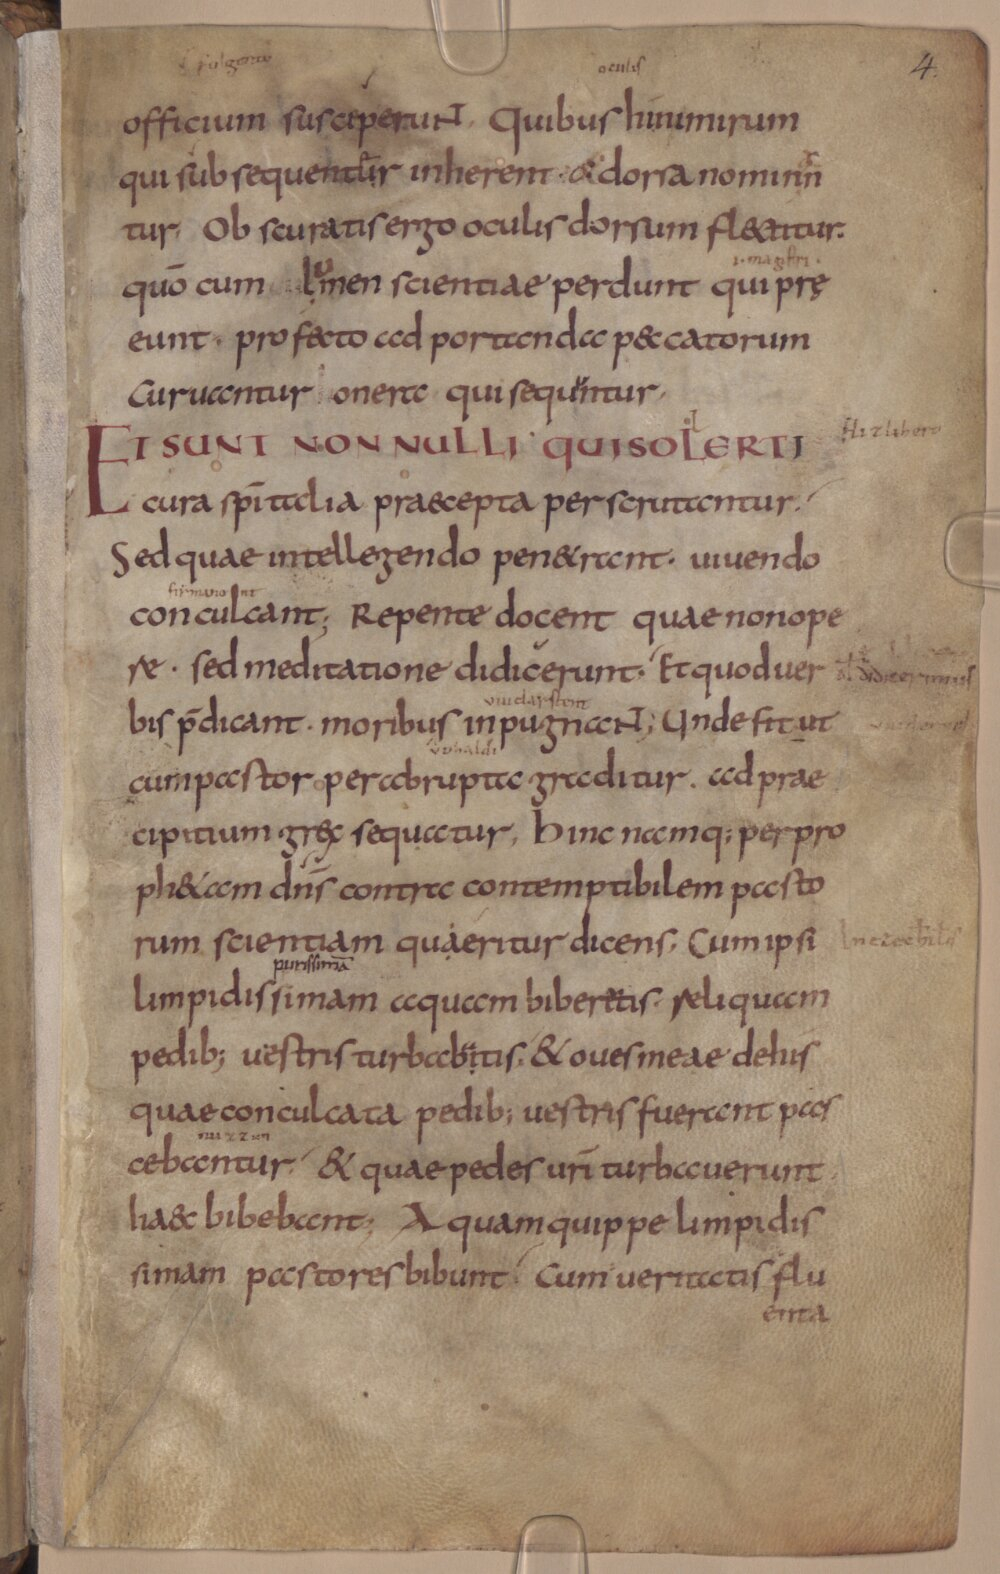 oculis
4.
officium susceperunt. Quibus hinimirum
qui subsequenter inherent. & dorsa nominan
tur. Obscuratis ergo oculis dorsum flectitur.
.i. magistri.
quō cum lumen scientiae perdunt qui prę
eunt. profecto ad portanda peccatorum
curuantur onera qui sequuntur.
ET SUNT NONNULLI QUI SOLERTI
cura sp̄italia praecepta perscrutantur.
Sed quae intellegendo penetrant. uiuendo
conculcant; Repente docent quae non ope
re. sed meditatione didicerunt. Et quod uer
bis p̄dicant. moribus inpugnant; Unde fit ut
cum pastor per abrupta graditur. ad prae
cipitium grex sequatur; Hinc namq; per pro
ph&am dn̄s contra contemptibilem pasto
rum scientiam quaeritur dicens; Cum ipsi
purissimā
limpidissimam aquam biberetis. reliquam
pedib; uestris turbabitis. & oues meae de his
quae conculcata pedib; uestris fuerant pas
cebantur. & quae pedes ur̄i turbauerunt
haec bibebant; Aquam quippe limpidis
simam pastores bibunt. Cum ueritatis flu
enta